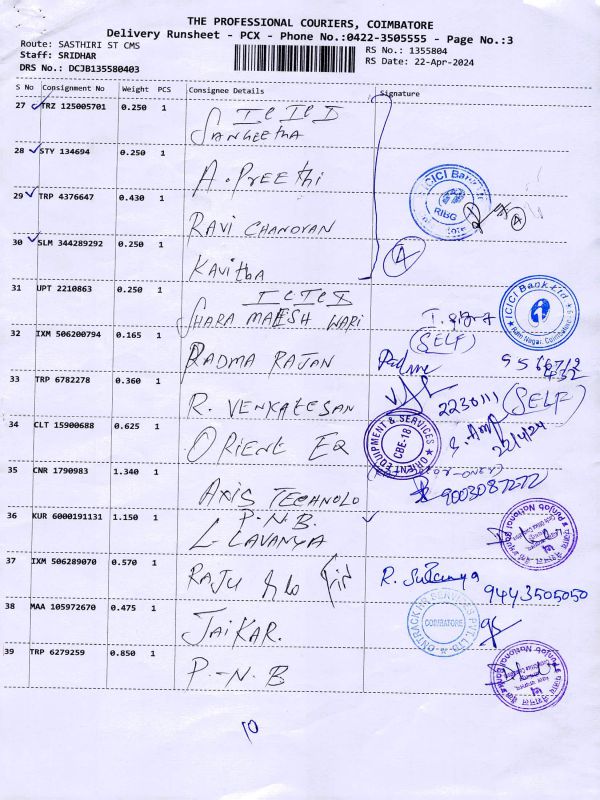 THE PROFESSIONAL COURIERS, COIMBATORE
Delivery Runsheet - PCX - Phone No.:0422-3505555 - Page No.:3
Route: SASTHIRI ST CMS RS No.: 1355804
Staff: SRIDHAR RS Date: 22-Apr-2024
DRS No.: DCJB135580403
S No Consignment No Weight PCS Consignee Details Signature
27 TRZ 125005701 0.250 1 SANGEETHA
28 STY 134694 0.250 1 A. PREETHI
ICICI Bank
RIBG
29 TRP 4376647 0.430 1 RAVI CHANDRAN
4
30 SLM 344289292 0.250 1 KAVITHA
31 UPT 2210863 0.250 1 SHARA MAEESH WARI
ICICI Bank Ltd
(SELF)
32 IXM 506200794 0.165 1 PADMA RAJAN
33 TRP 6782278 0.360 1 R. VENKATESAN
2230111 (SELF)
34 CLT 15900688 0.625 1 ORIENT EQ
ORIENT EQUIPMENT & SERVICES
CBE-18
22/4/24
35 CNR 1790983 1.340 1 AXIS TECHNOLO
9003087272
36 KUR 6000191131 1.150 1 P-N.B.
L. LAVANYA
Punjab National Bank
37 IXM 506289070 0.570 1 RAJU
R. Sukanya 9443505050
38 MAA 105972670 0.475 1 JAIKAR.
COIMBATORE
39 TRP 6279259 0.850 1 P-N-B
Punjab National Bank
10